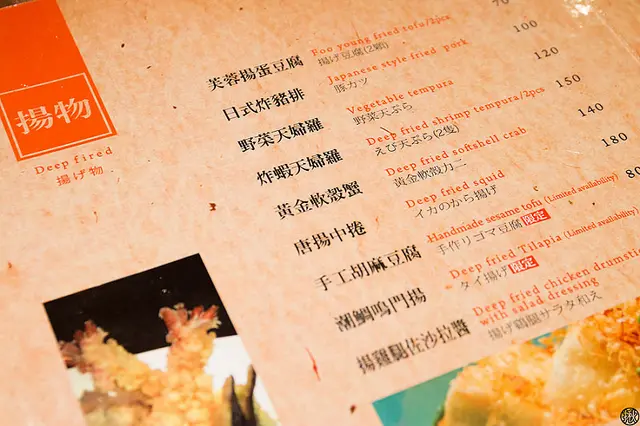 揚物
Deep fired
揚げ物
芙蓉揚蛋豆腐
Foo young fried tofu/2pcs
揚げ豆腐(2顆)
70
日式炸豬排
Japanese style fried pork
豚カツ
100
野菜天婦羅
Vegetable tempura
野菜天ぷら
120
炸蝦天婦羅
Deep fried shrimp tempura/2pcs
えび天ぷら(2隻)
150
黃金軟殼蟹
Deep fried softshell crab
黃金軟殼カニ
140
唐揚中捲
Deep fried squid
イカのから揚げ
180
手工胡麻豆腐
Handmade sesame tofu (Limited availability)
手作りゴマ豆腐 限定
80
潮鯛鳴門揚
Deep fried Tilapia (Limited availability)
タイ揚げ 限定
揚雞腿佐沙拉醬
Deep fried chicken drumstic
with salad dressing
揚げ鶏腿サラタ和え